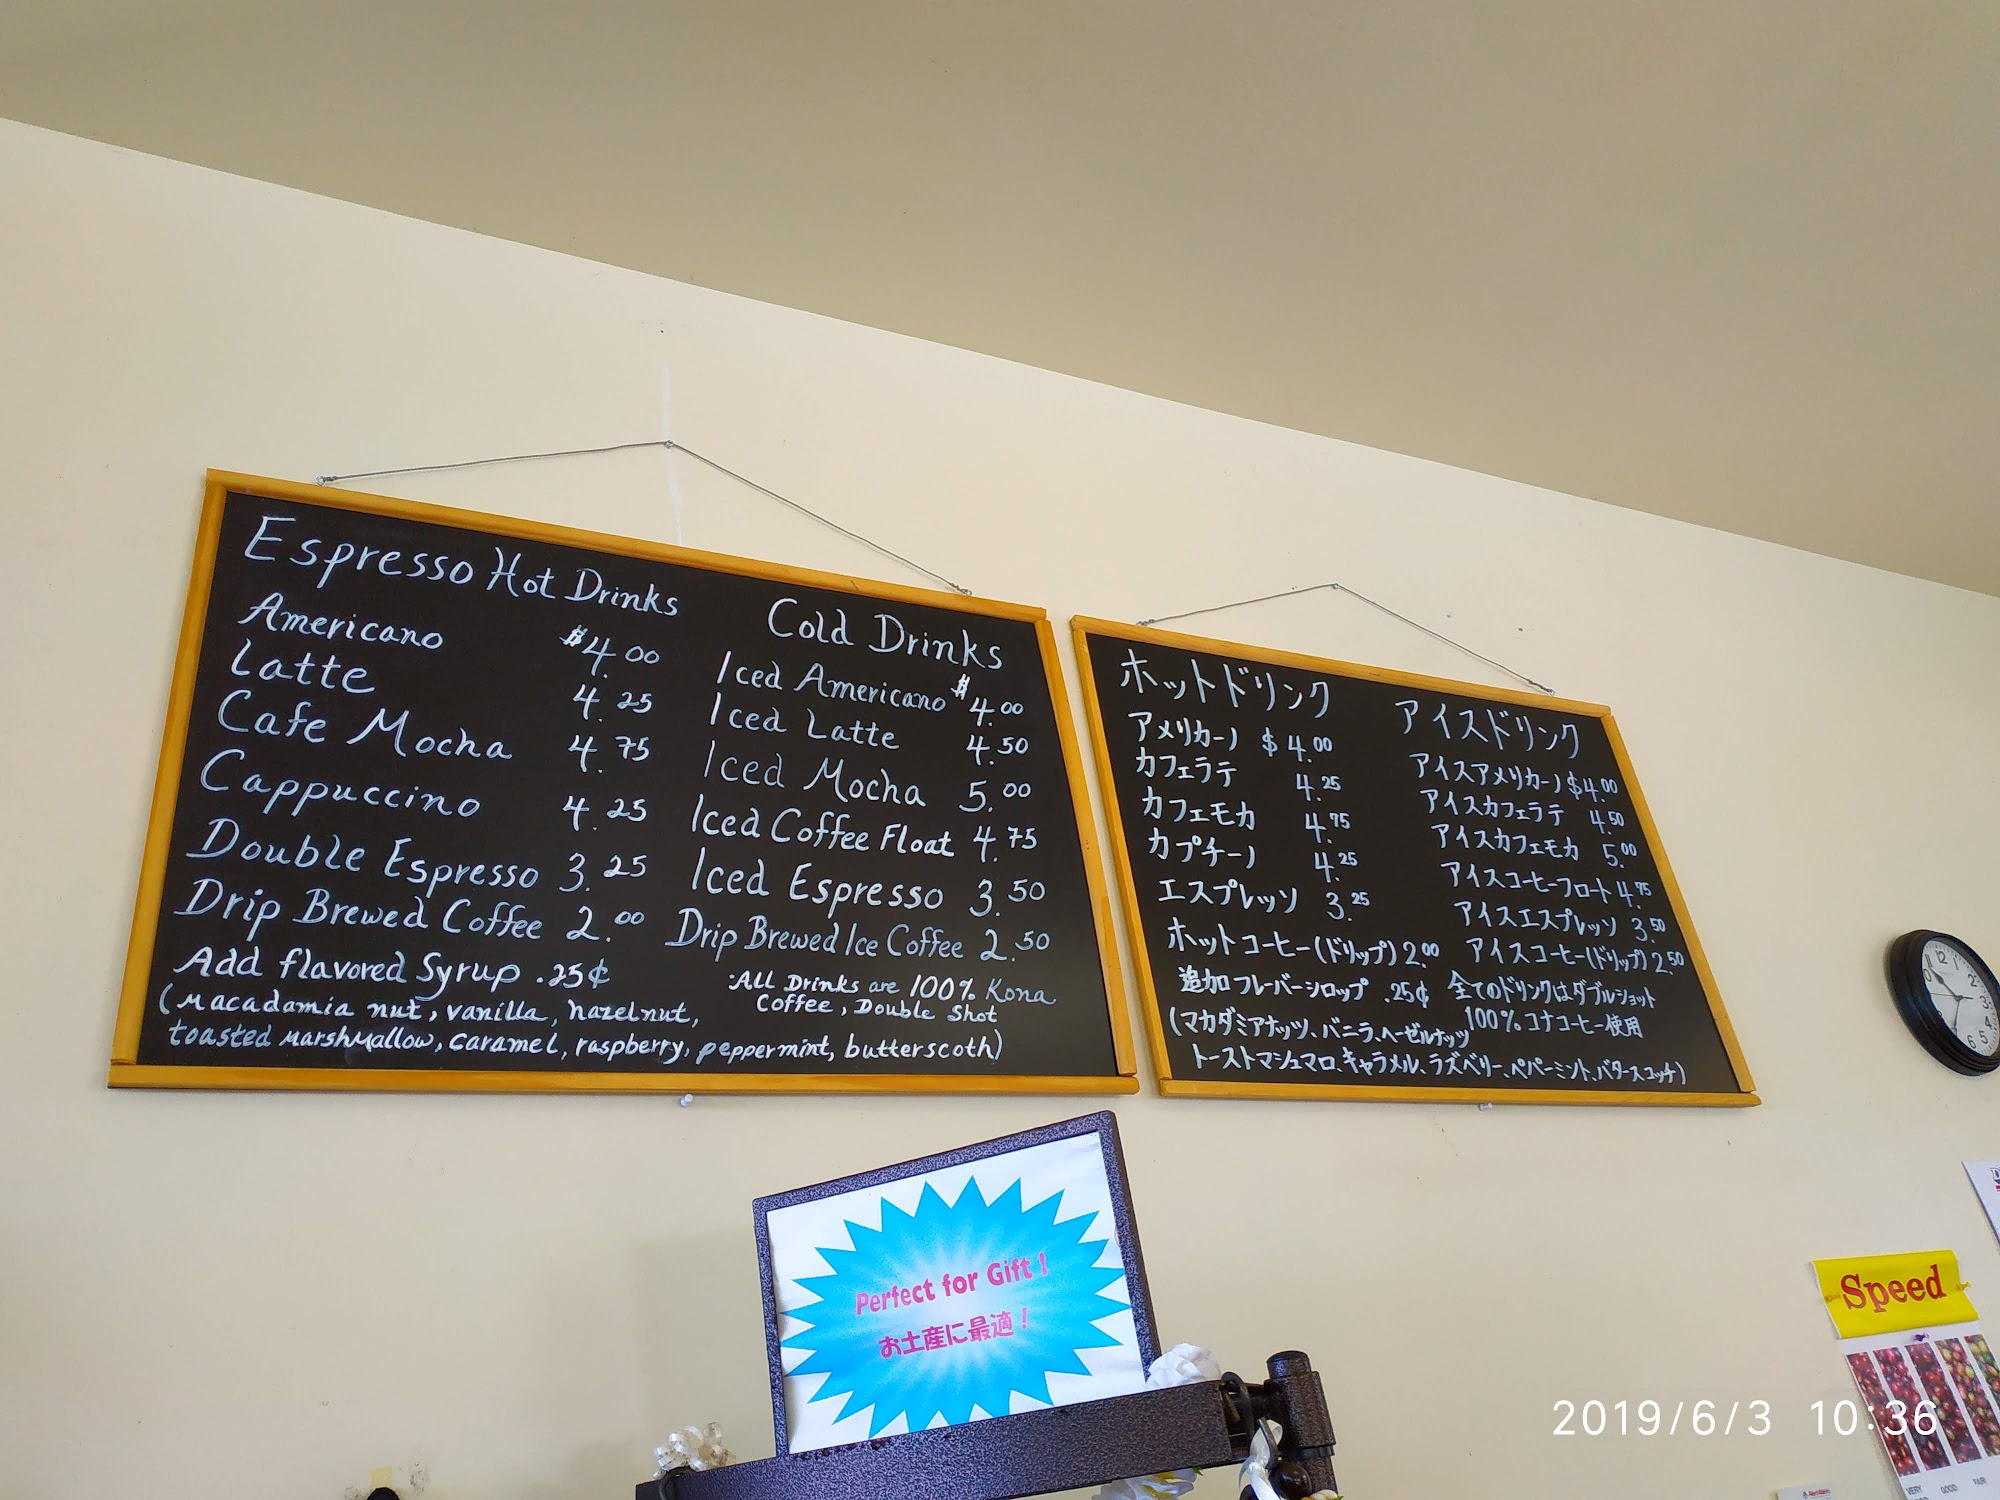 Espresso Hot Drinks
Americano $4.00
Latte 4.25
Cafe Mocha 4.75
Cappuccino 4.25
Double Espresso 3.25
Drip Brewed Coffee 2.00
Add flavored Syrup .25¢
(Macadamia nut, vanilla, hazelnut,
toasted marshmallow, caramel, raspberry, peppermint, butterscoth)
Cold Drinks
Iced Americano $4.00
Iced Latte 4.50
Iced Mocha 5.00
Iced Coffee Float 4.75
Iced Espresso 3.50
Drip Brewed Ice Coffee 2.50
·All Drinks are 100% Kona
Coffee, Double Shot
ホットドリンク
アメリカーノ $4.00
カフェラテ 4.25
カフェモカ 4.75
カプチーノ 4.25
エスプレッソ 3.25
ホットコーヒー(ドリップ) 2.00
追加フレーバーシロップ .25¢
(マカダミアナッツ、バニラ、ヘーゼルナッツ
トーストマシュマロ、キャラメル、ラズベリー、ペパーミント、バタースコッチ)
アイスドリンク
アイスアメリカーノ $4.00
アイスカフェラテ 4.50
アイスカフェモカ 5.00
アイスコーヒーフロート 4.75
アイスエスプレッソ 3.50
アイスコーヒー(ドリップ) 2.50
全てのドリンクはダブルショット
100%コナコーヒー使用
12
2
3
5
6
Perfect for Gift!
お土産に最適!
Speed
VERY
GOOD
FAIR
2019/6/3 10:36